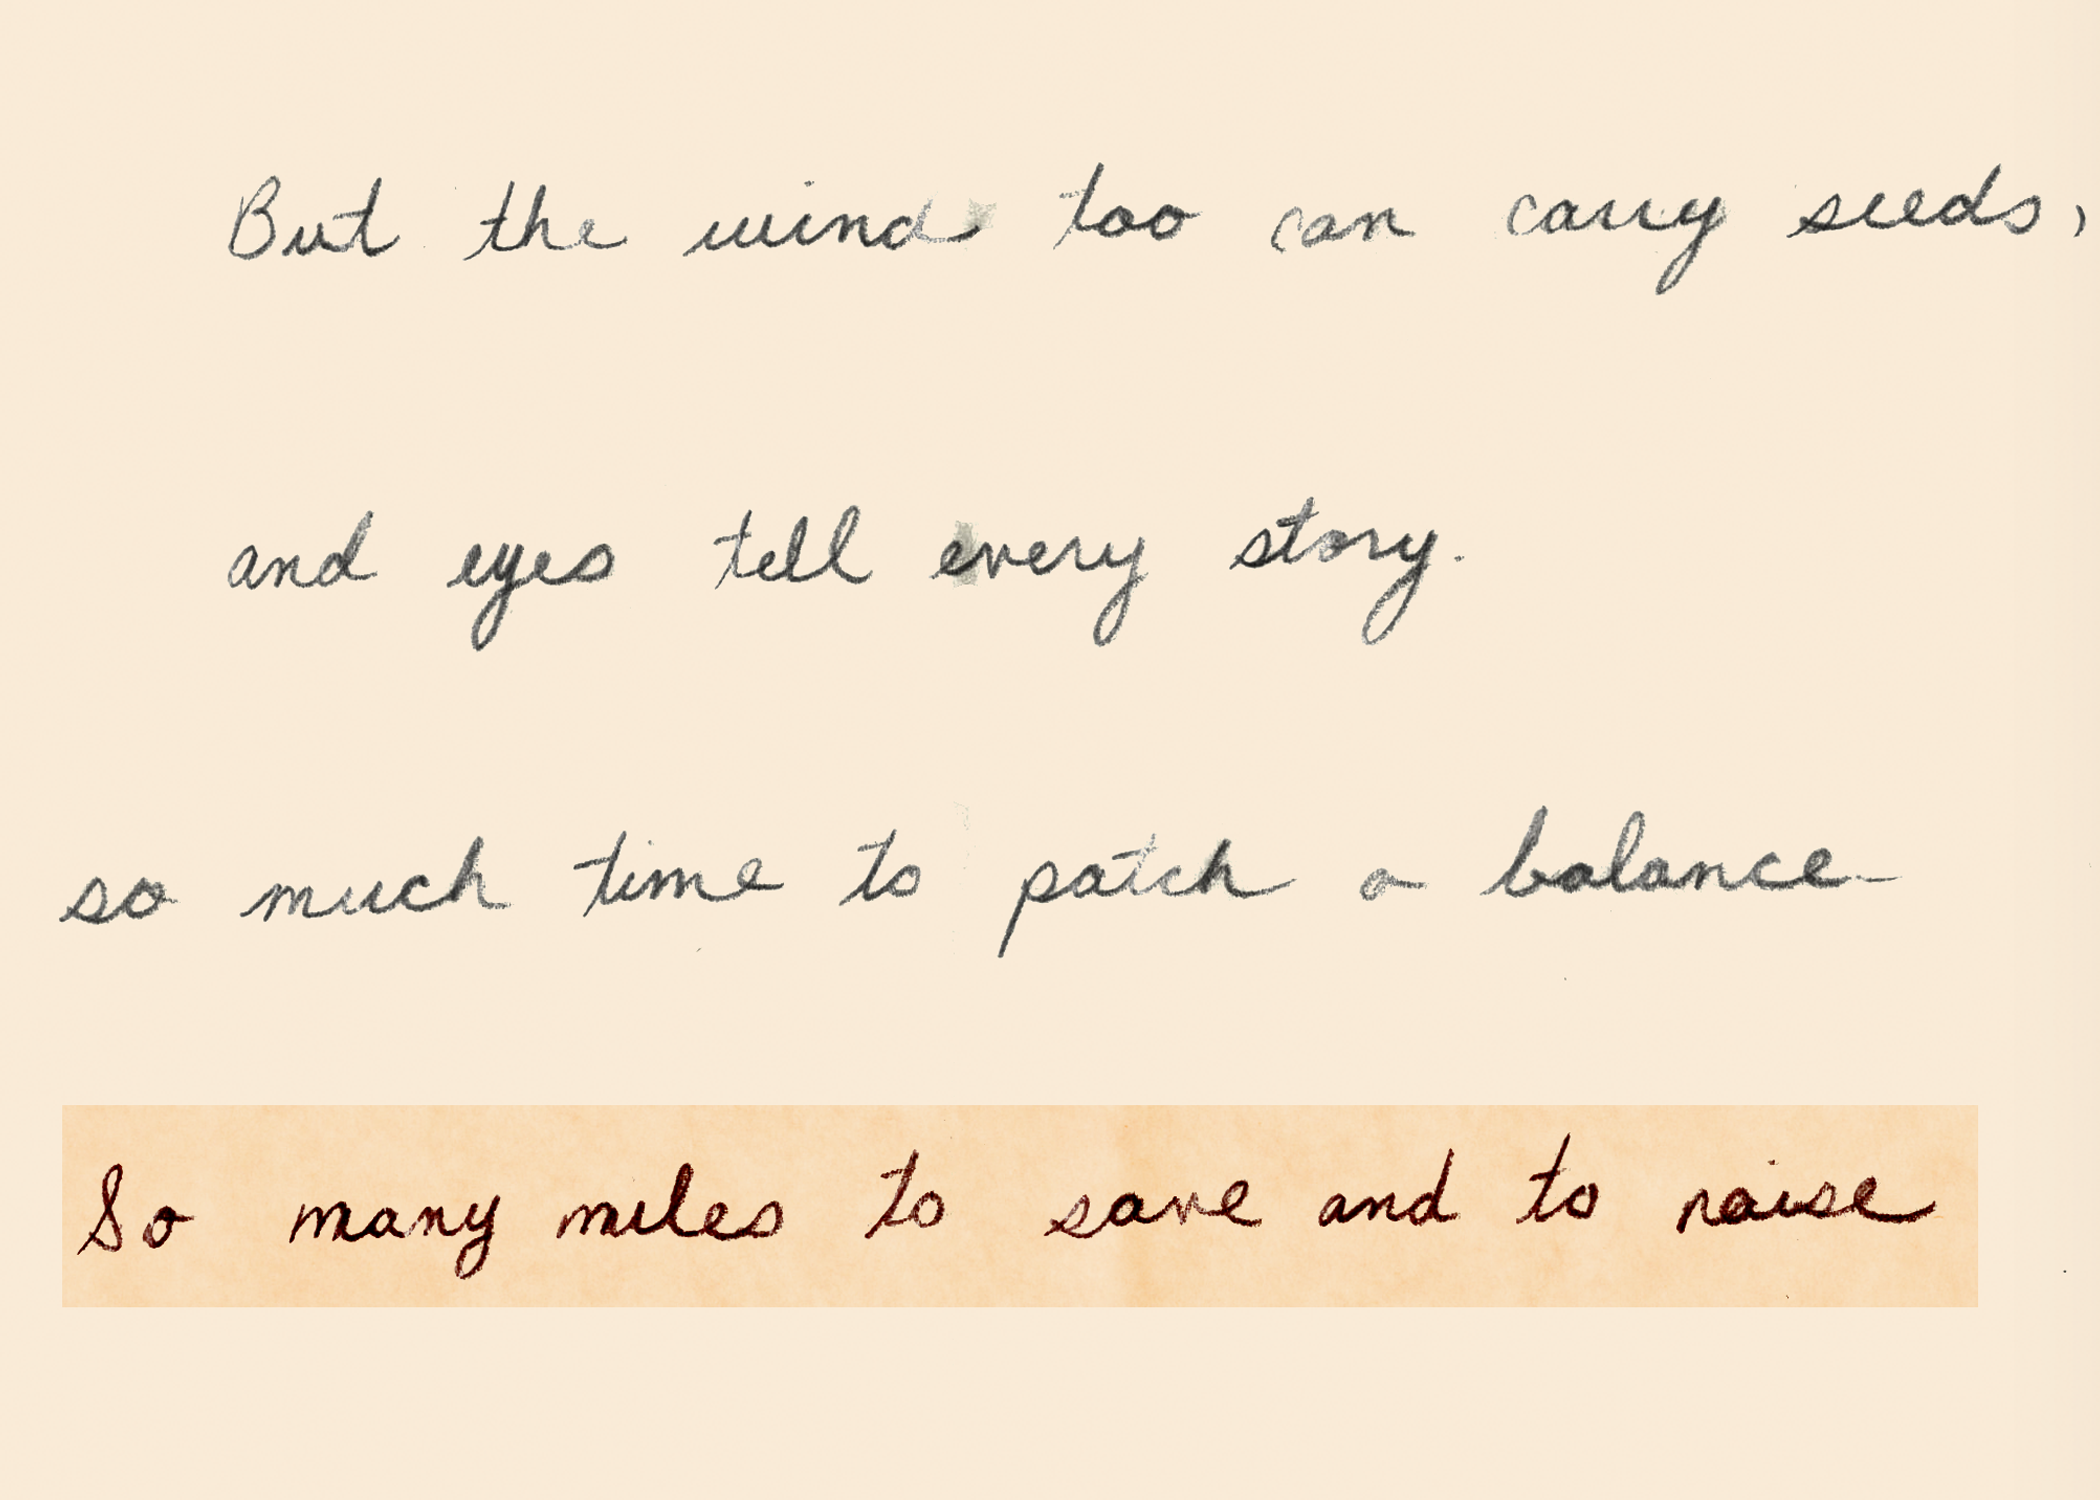 But the wind too can carry seeds,
and eyes tell every story.
so much time to patch a balance
So many miles to save and to raise